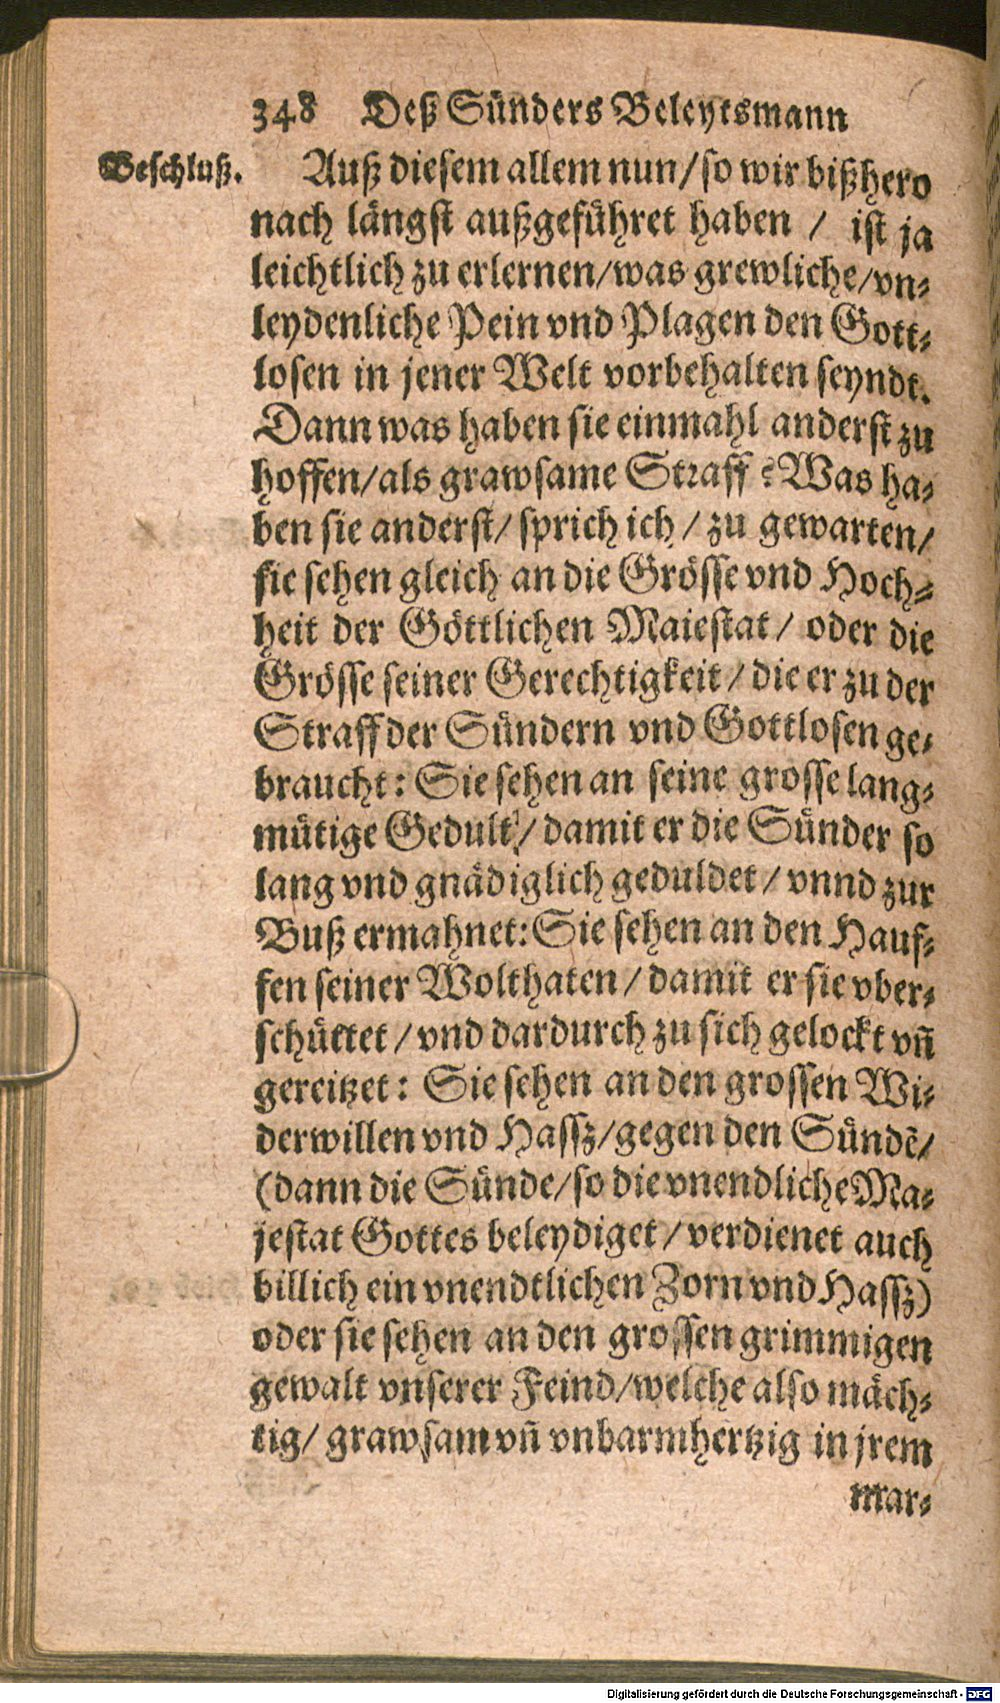 348 Deß Sünders Beleytsmann
Beschluß. Auß diesem allem nun/so wir bißhero
nach längst außgeführet haben / ist ja
leichtlich zu erlernen/was grewliche/vn-
leydenliche Pein vnd Plagen den Gott-
losen in jener Welt vorbehalten seyndt.
Dann was haben sie einmahl anderst zu
hoffen/als grawsame Straff? Was ha-
ben sie anderst/ sprich ich / zu gewarten/
sie sehen gleich an die Grösse vnd Hoch-
heit der Göttlichen Maiestat/ oder die
Grösse seiner Gerechtigkeit/ die er zu der
Straff der Sündern vnd Gottlosen ge-
braucht: Sie sehen an seine grosse lang-
mütige Gedult/ damit er die Sünder so
lang vnd gnädiglich geduldet/ vnnd zur
Buß ermahnet: Sie sehen an den Hauf-
fen seiner Wolthaten/ damit er sie vber-
schüttet/ vnd dardurch zu sich gelockt vñ
gereitzet: Sie sehen an den grossen Wi-
derwillen vnd Hassz/gegen den Sündẽ/
(dann die Sünde/so die vnendliche Ma-
jestat Gottes beleydiget/ verdienet auch
billich ein vnendtlichen Zorn vnd Hassz)
oder sie sehen an den grossen grimmigen
gewalt vnserer Feind/welche also mäch-
tig/ grawsam vñ vnbarmhertzig in jrem
mar-
Digitalisierung gefördert durch die Deutsche Forschungsgemeinschaft - DFG